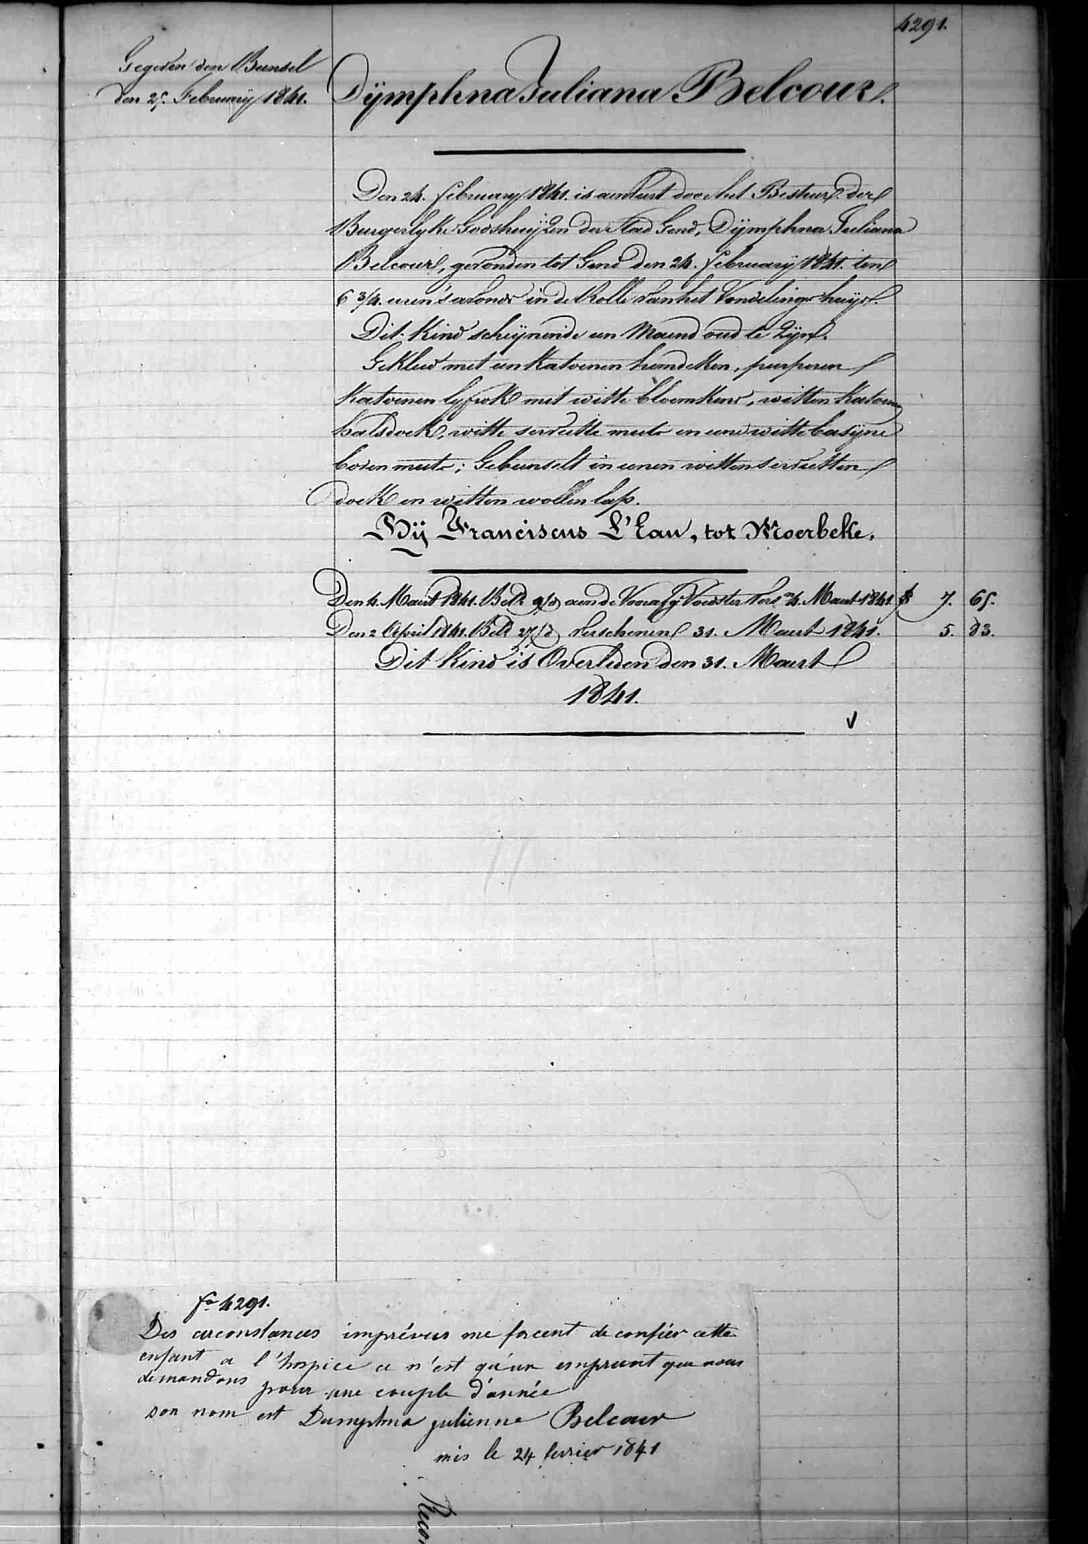 4291.
Gegeven den Bunsel
den 25. February 1841.
Dÿmphna Juliana Belcour.
Den 24. february 1841. is aenveert door het Bestuur der
Burgerlyke Godshuÿzen der Stad Gend, Dÿmphna Juliana
Belcour, gevonden tot Gend den 24. februarÿ 1841. ten
6 3/4 uren 's avonds in de Rolle van het Vondelings-huÿs.
Dit Kind scheÿnende een Maend oud te zÿn.
Gekleed met een Katoenen hemdeken, purperen
Katoenen lyfrok met witte bloemkens, witten Katoenen
halsdoek, witte serviette muts en eene witte basÿne
boven muts; Gebunselt in eenen witten servietten
doek en witten wollen lap.
Bÿ Franciscus L'Eau, tot Moerbeke.
Den 4. Maert 1841. Bett. aen de Voorafg. Voedster Vers. 4. Maert 1841 7. 65.
Den 2 April 1841. Bett. 27/d Verschenen 31. Maert 1841. 5. 83.
Dit Kind is Overleden den 31. Maert
1841.
fo 4291.
Des circonstances imprévues me forcent de confier cette
enfant a l'hospice ce n'est qu'un emprunt que nous
demandons pour une couple d'année
son nom est Dumphna julienne Belcour
mis le 24 fevrier 1841
Recon